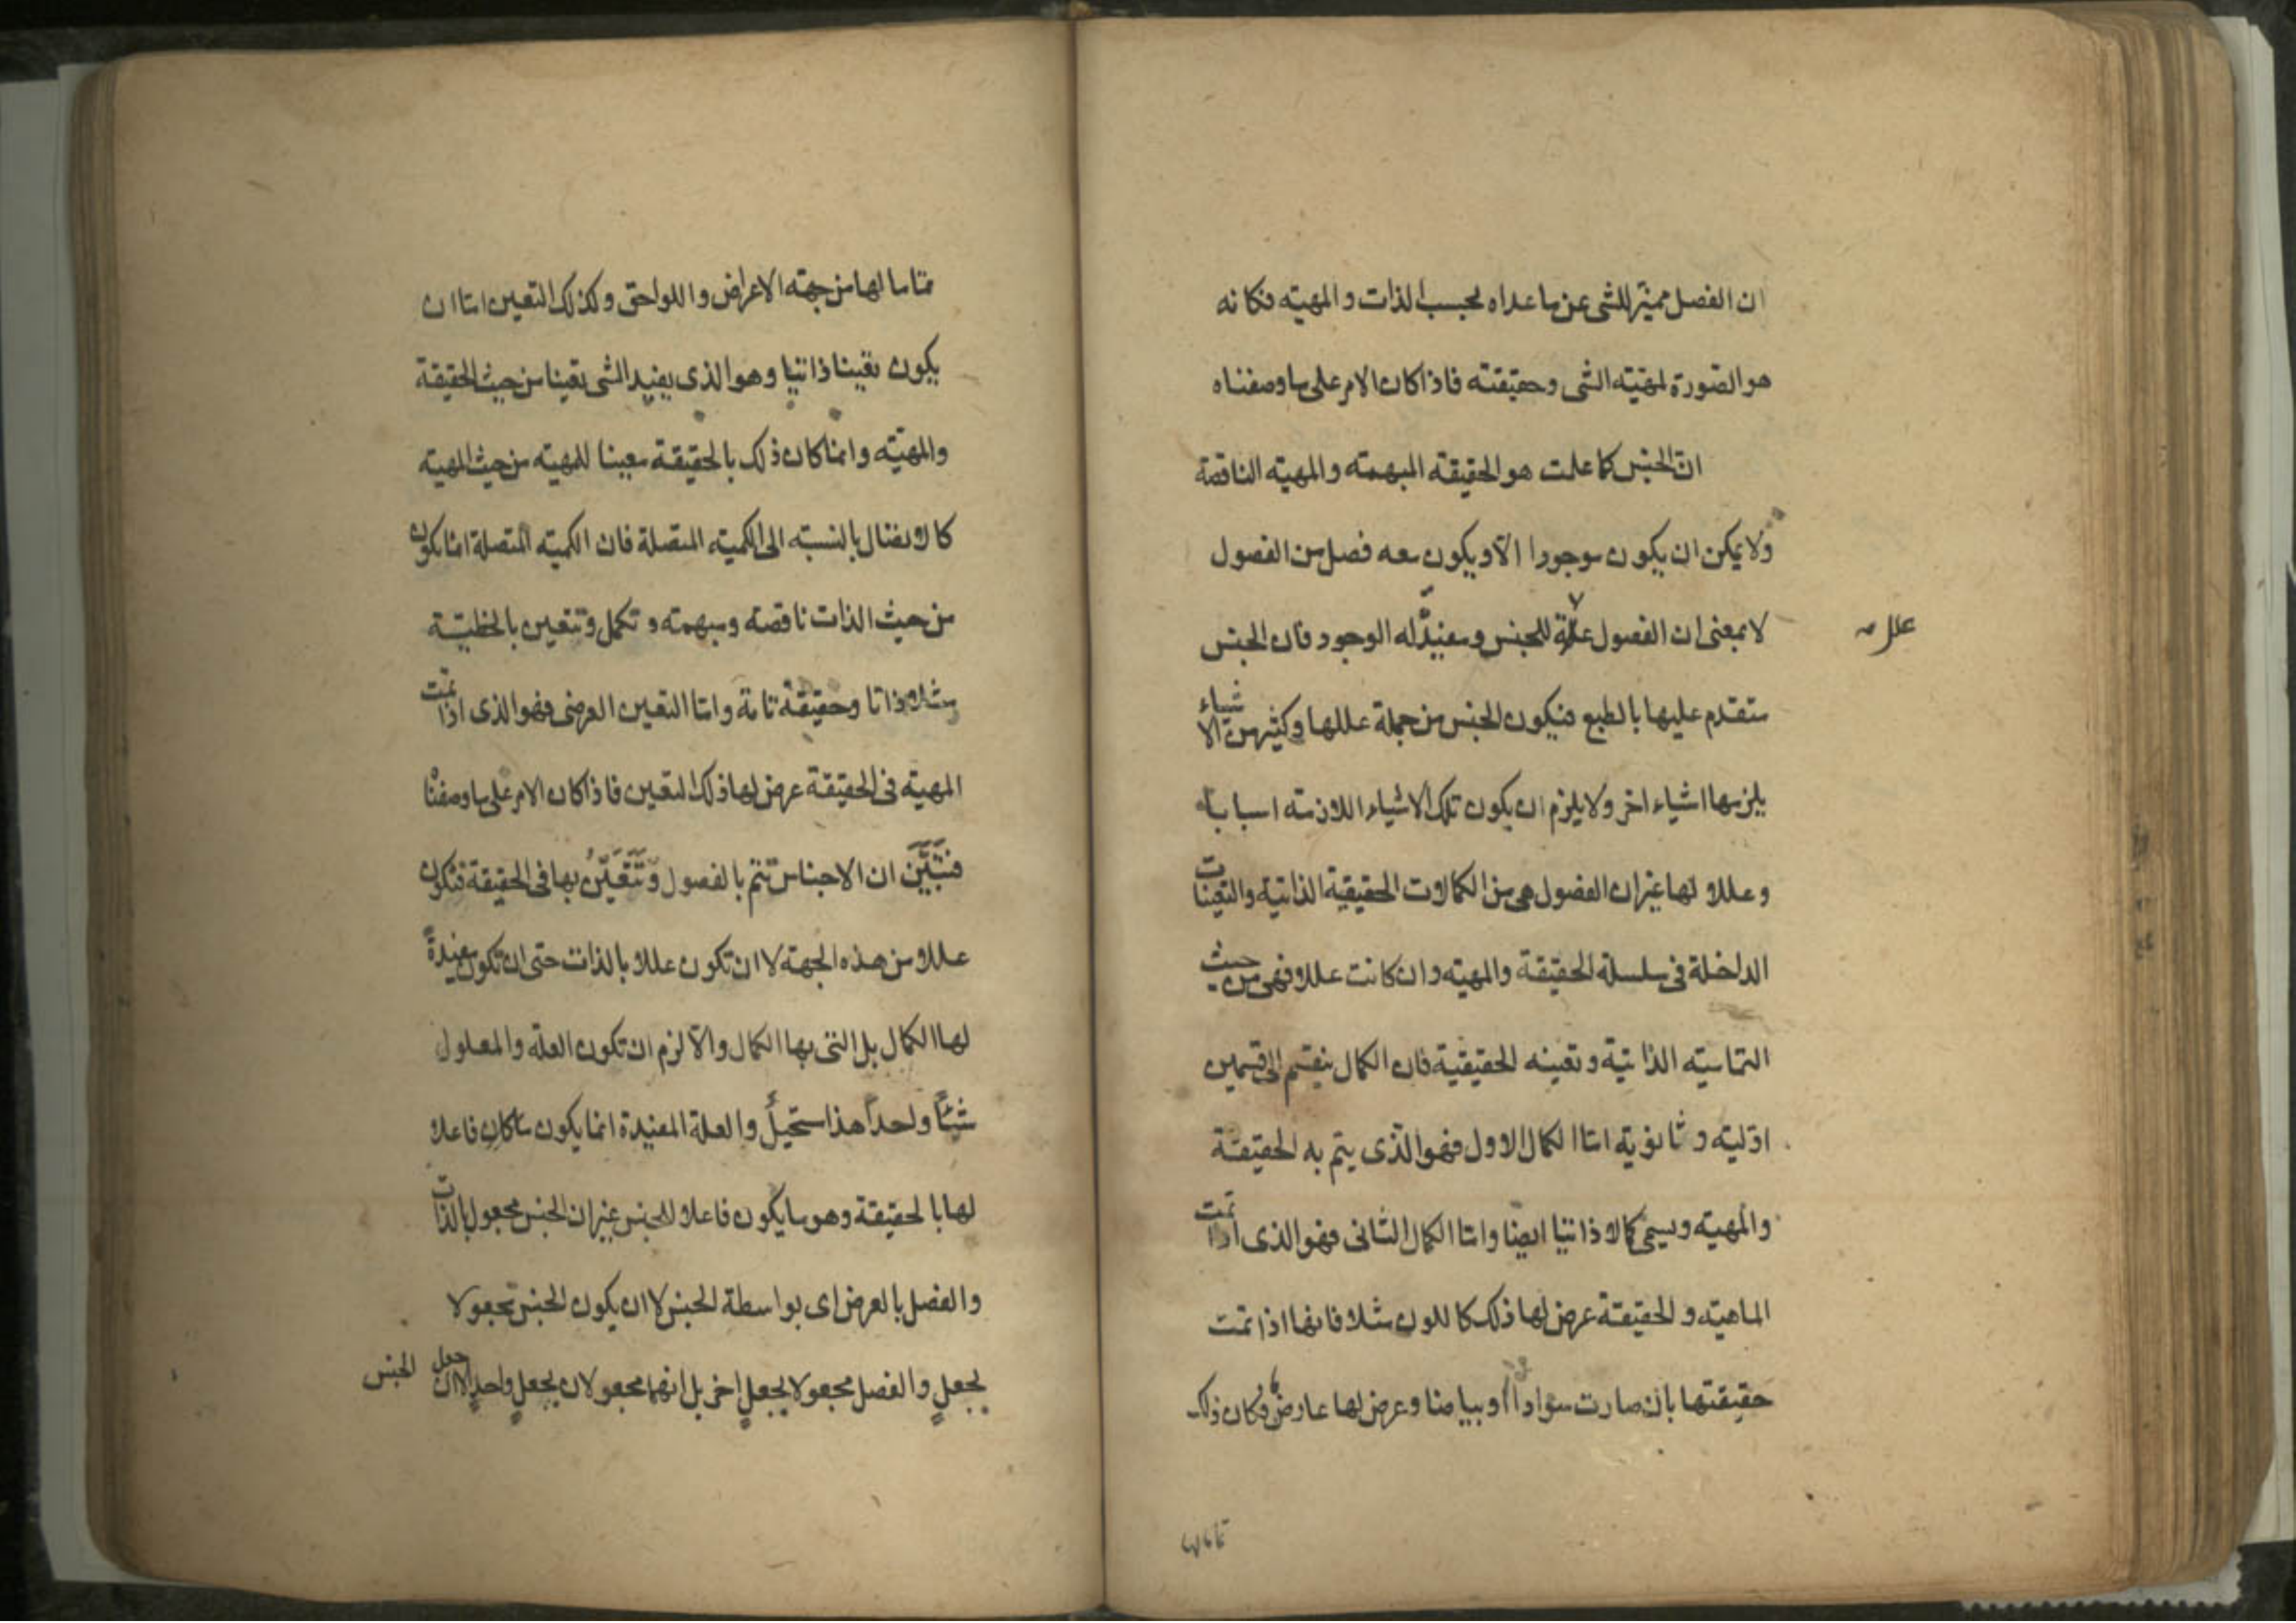 ان الفصل مميّز للشى عن ما عداه بحسب الذات و المهيته فكانه
هو الصّورة لمهيّته الشى وحقيقته فاذا كان الامر على ما وصفناه
انّ الجنس كما علمت هو الحقيقته المبهمته و المهيته الناقصة
ولا يمكن ان يكون موجودا الّا ويكون معه فصل من الفصول
لا بمعنى ان الفصول علّة للجنس و مفيدٌ له الوجود فان الجنس
علل
متقدم عليها بالطبع فيكون الجنس من جملة عللها وكثير من الاشياء
يلزمها اشياء اخر ولا يلزم ان يكون تلك الاشياء اللازمته اسبابا
وعللا لها غير ان الفصول هى من الكمالات الحقيقية الذاتية والتعينات
الداخلة فى سلسلة الحقيقة والمهيته وان كانت عللا فهى من حيث
التماميّته الذاتية و تعينه الحقيقية فان الكمال ينقسم الى قسمين
اوّليته و ثانوية امّا الكمال الاول فهو الّذى يتم به الحقيقة
والمهيته ويسمى كمالا ذاتيا ايضا وامّا الكمال الثانى فهو الذى اذا تمت
الماهيته و الحقيقة عرض لها ذلك كاللون مثلا فانها اذا تمت
حقيقتها بان صارت سوادا او بياضا وعرض لها عارض فكان ذلك
تماما لها
تماما لها من جهته الاعراض و اللواحق وكذلك التعين امّا ان
يكون تعينا ذاتيا وهو الذى يفيد الشى تعينا من حيث الحقيقة
والمهيّته وانما كان ذلك بالحقيقة معينا للمهيته من حيث المهيته
كالانفصال بالنسبته الى الكميته المتصلة فان الكميته المتصلة انما يكون
من حيث الذات ناقصه ومبهمته و تكمل وتتعين بالخطيّة
مثلا ذاتا وحقيقة تامة وامّا التعين العرضى فهو الذى اذا تمت
المهيته فى الحقيقة عرض لها ذلك التعين فاذا كان الامر على ما وصفنا
فتبيّن ان الاجناس تتم بالفصول وتتعيّن بها فى الحقيقة فتكون
عللا من هذه الجهته لا ان تكون عللا بالذات حتى ان تكون مفيدة
لها الكمال بل التى بها الكمال والّا لزم ان تكون العلّه والمعلول
شيئاً واحداً هذا مستحيلٌ والعلة المفيدة انما يكون ما كان فاعلا
لها بالحقيقة وهو ما يكون فاعلا للجنس غير ان الجنس مجعول بالذات
والفصل بالعرض اى بواسطة الجنس لا ان يكون الجنس مجعولا
بجعلٍ والفصل مجعولا بجعلٍ اخر بل انهما مجعولان بجعلٍ واحدٍ الا ان جعل الجنس